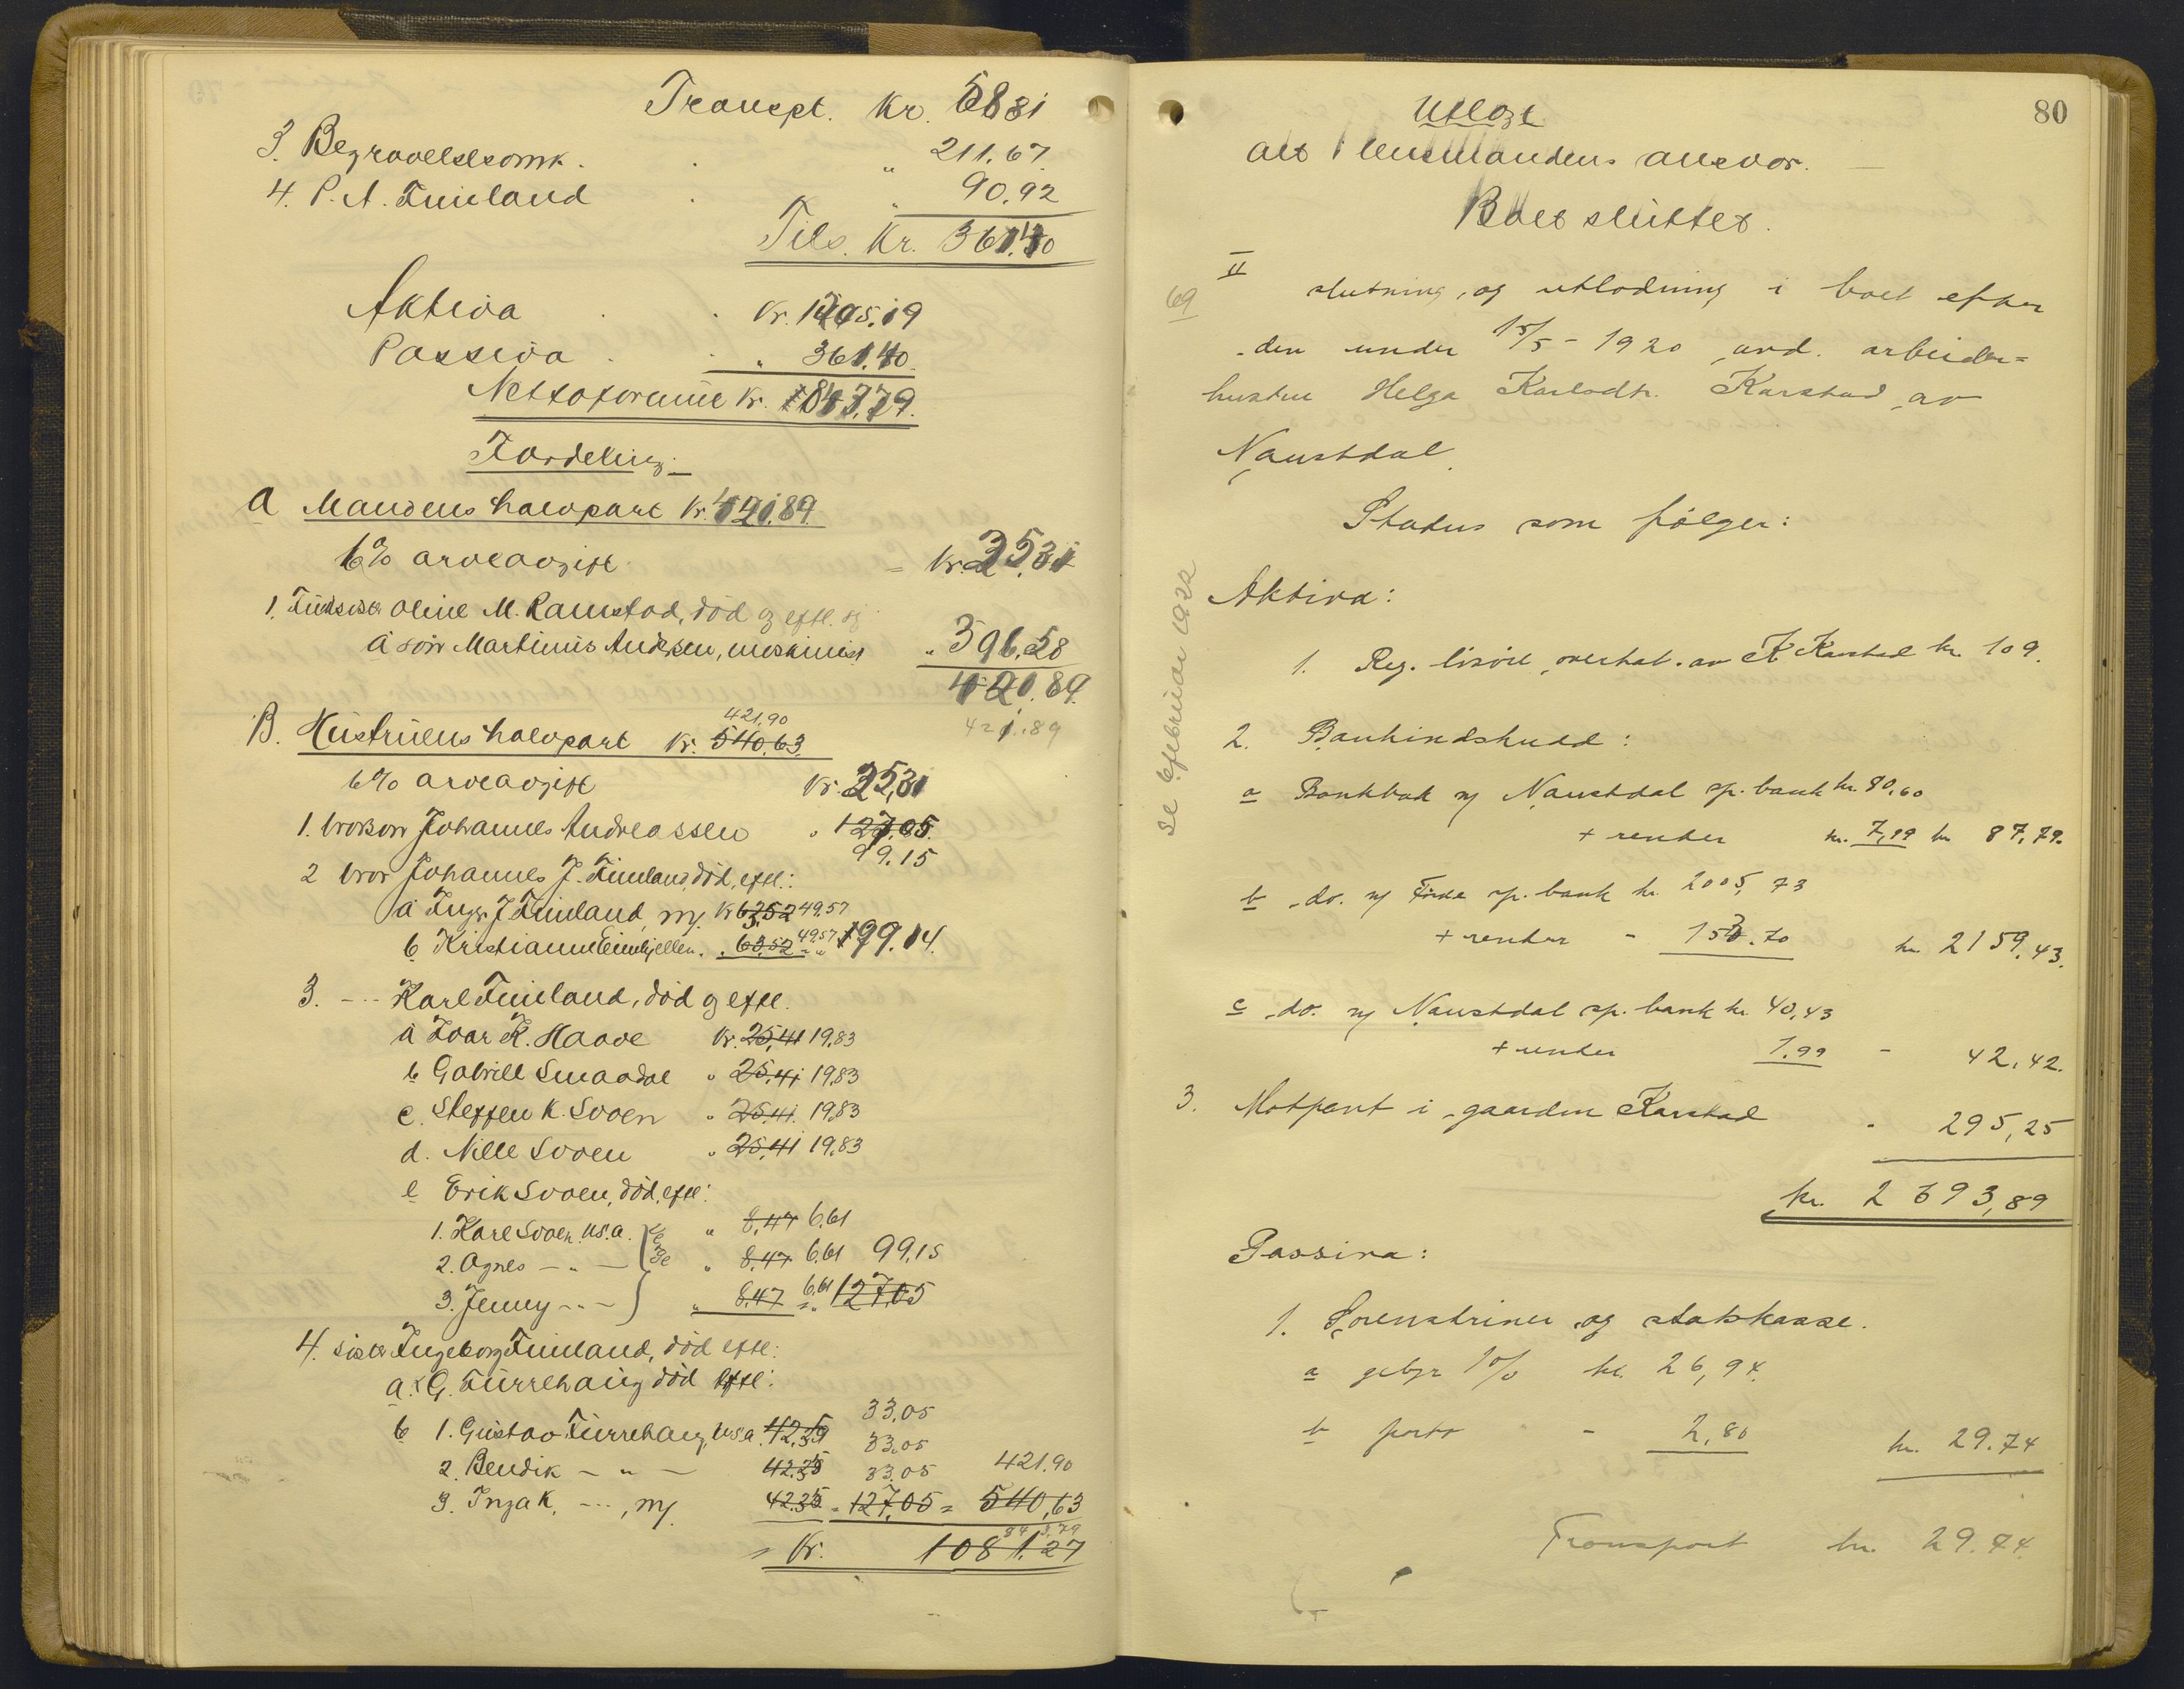 Transpt. Kr. 5881
3. Begravelsesomk. " 211.67
4. P. A. Fimland " 90.92
Tils. Kr. 361.40
Aktiva Kr. 1205.19
Passiva " 361.40
Nettoformue Kr. 843.79.
Fordeling.
A Mandens halvpart Kr. 421.89.
6% arveavgift = Kr. 25.31
1. oline M. Ramstad, död og eftl. sig
a sön Martinius Andersen, maskinist " 396.58
421.89.
421.89
421.90
B. Hustruens halvpart Kr. 540.63.
6% arveavgift Kr. 25,31
1. brorson Johannes Andreassen " 127.05.
99.15
2 bror Johannes J. Fimland, död, eftl.:
a Inger J Fimland, m/ Kr 63,52 49.57
b Kristianne Eimhjellen. " 63,52 49.57 = " 99.14.
3. -"- Karl Fimland, död og eftl.
a Ivar K. Haave Kr. 25,41 19,83
b Gabriel Smaadal " 25,41 19,83
c. Steffen K. Svoen " 25,41. 19,83
d. Nille Svoen " 25,41 19,83
e Erik Svoen, död, eftl:
1. Karl Svoen. us.a. " 8,47 6,61
2. Agnes -"- verge " 8,47 6,61 99,15
3. Jenny -"- " 8,47 6,61 = " 127,05
4. söster Ingeborg Fimland, död eftl:
a. G. Furrehaug död eftl:
33,05
b 1. Gustav Furrehaug, us.a. 42,35 33.05
2. Bendik - " - 42.35 33.05 421.90
3. Inga K. -"-, m/ 42.35 = 127,05 = 540,63
843,79
= Kr. 1081.27
80
Utlagt
alt lensmandens ansvar.
Boet sluttet.
II
69
slutning, og utlodning i boet efter
den under 15/5 - 1920 avd. arbeider=
hustru Helga Karlsdtr. Karstad av
Naustdal.
Status som fölger:
se 6 februar 1922
Aktiva:
1. Reg. lösöre overtat. av K Karstad kr. 109.
2. Bankindskudd:
a Bankbok m/ Naustdal sp. bank kr. 80,60
+ renter kr. 7,19 kr 87,79.
b do. m/ Förde sp. bank kr. 2005,73
+ renter - 153.70 kr 2159.43.
c do. m/ Naustdal sp. bank kr. 40,43
+ renter 1.99 - 42,42.
3. Motpant i gaarden Karstad - 295,25
kr. 2693,89
Passiva:
1. Sorenskriver og statskasse.
a gebyr 1% kr. 26,94.
b porto - 2,80 kr. 29.74
Transport kr. 29.74.